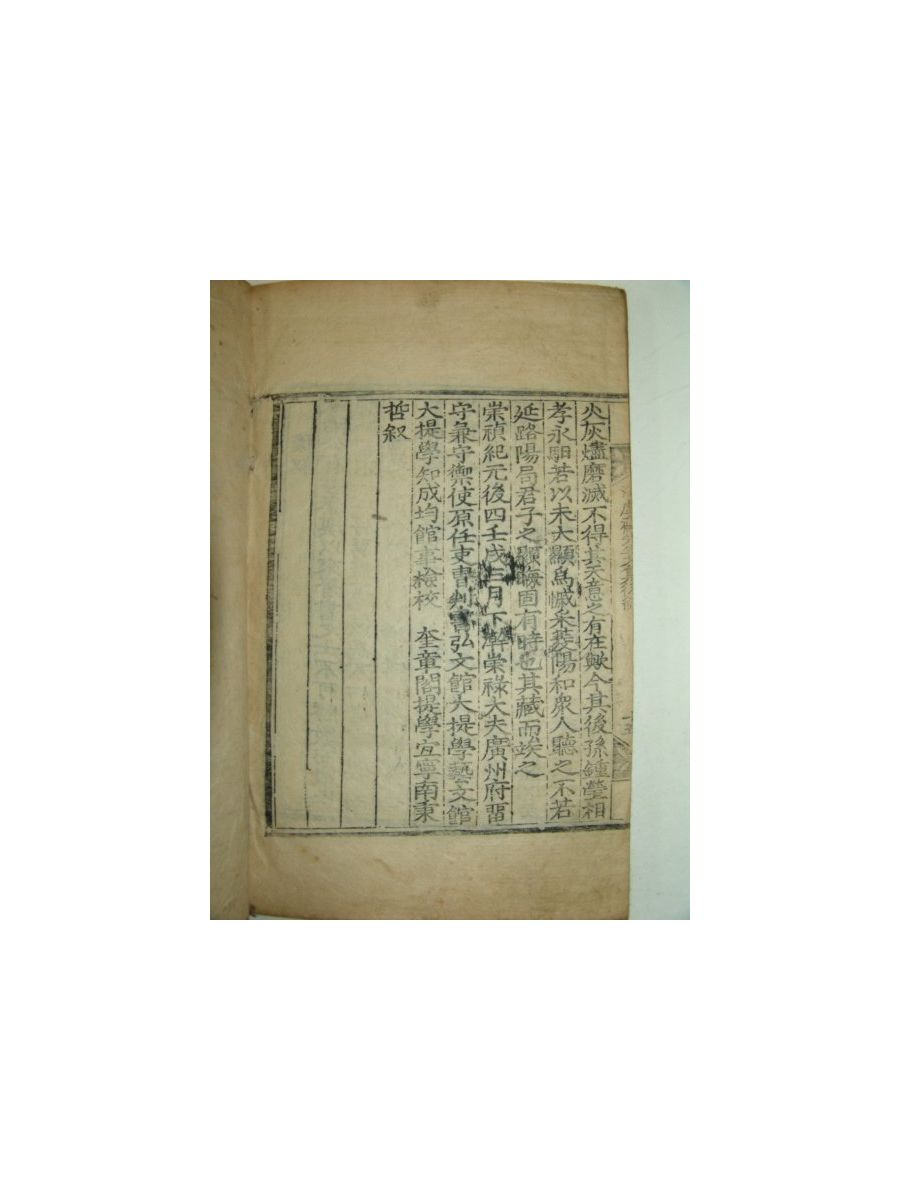 火灰燼磨滅不得甚天意之有在歟今其後孫鍾瑩相
孝永馹若以未大顯爲慽采菱陽和衆人聽之不若
延路陽局君子之顯晦固有時也其藏而竢之
崇禎紀元後四壬戌三月下澣崇祿大夫廣州府畱
守兼守禦使原任吏曹判書弘文館大提學藝文館
大提學知成均館事檢校 奎章閣提學宜寧南秉
哲叙